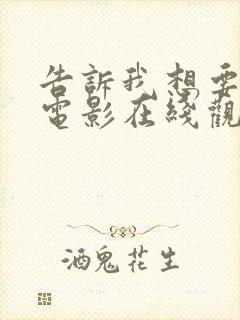 告訴我想要
電影在綫觀
酒鬼花生